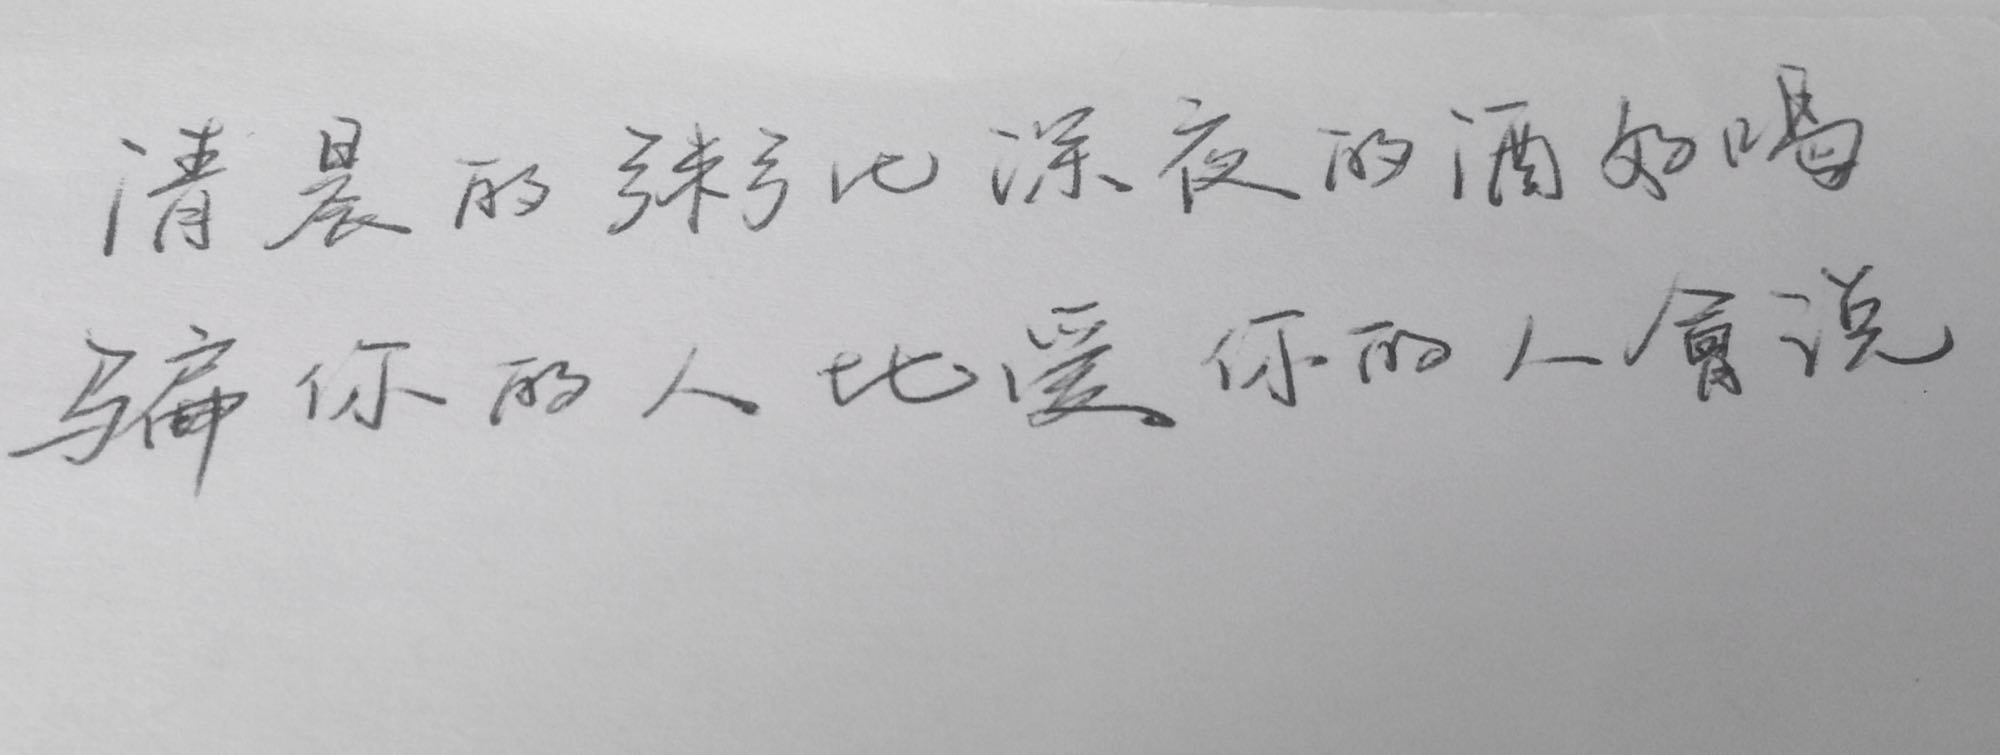 清晨的粥比深夜的酒好喝
骗你的人比爱你的人會说